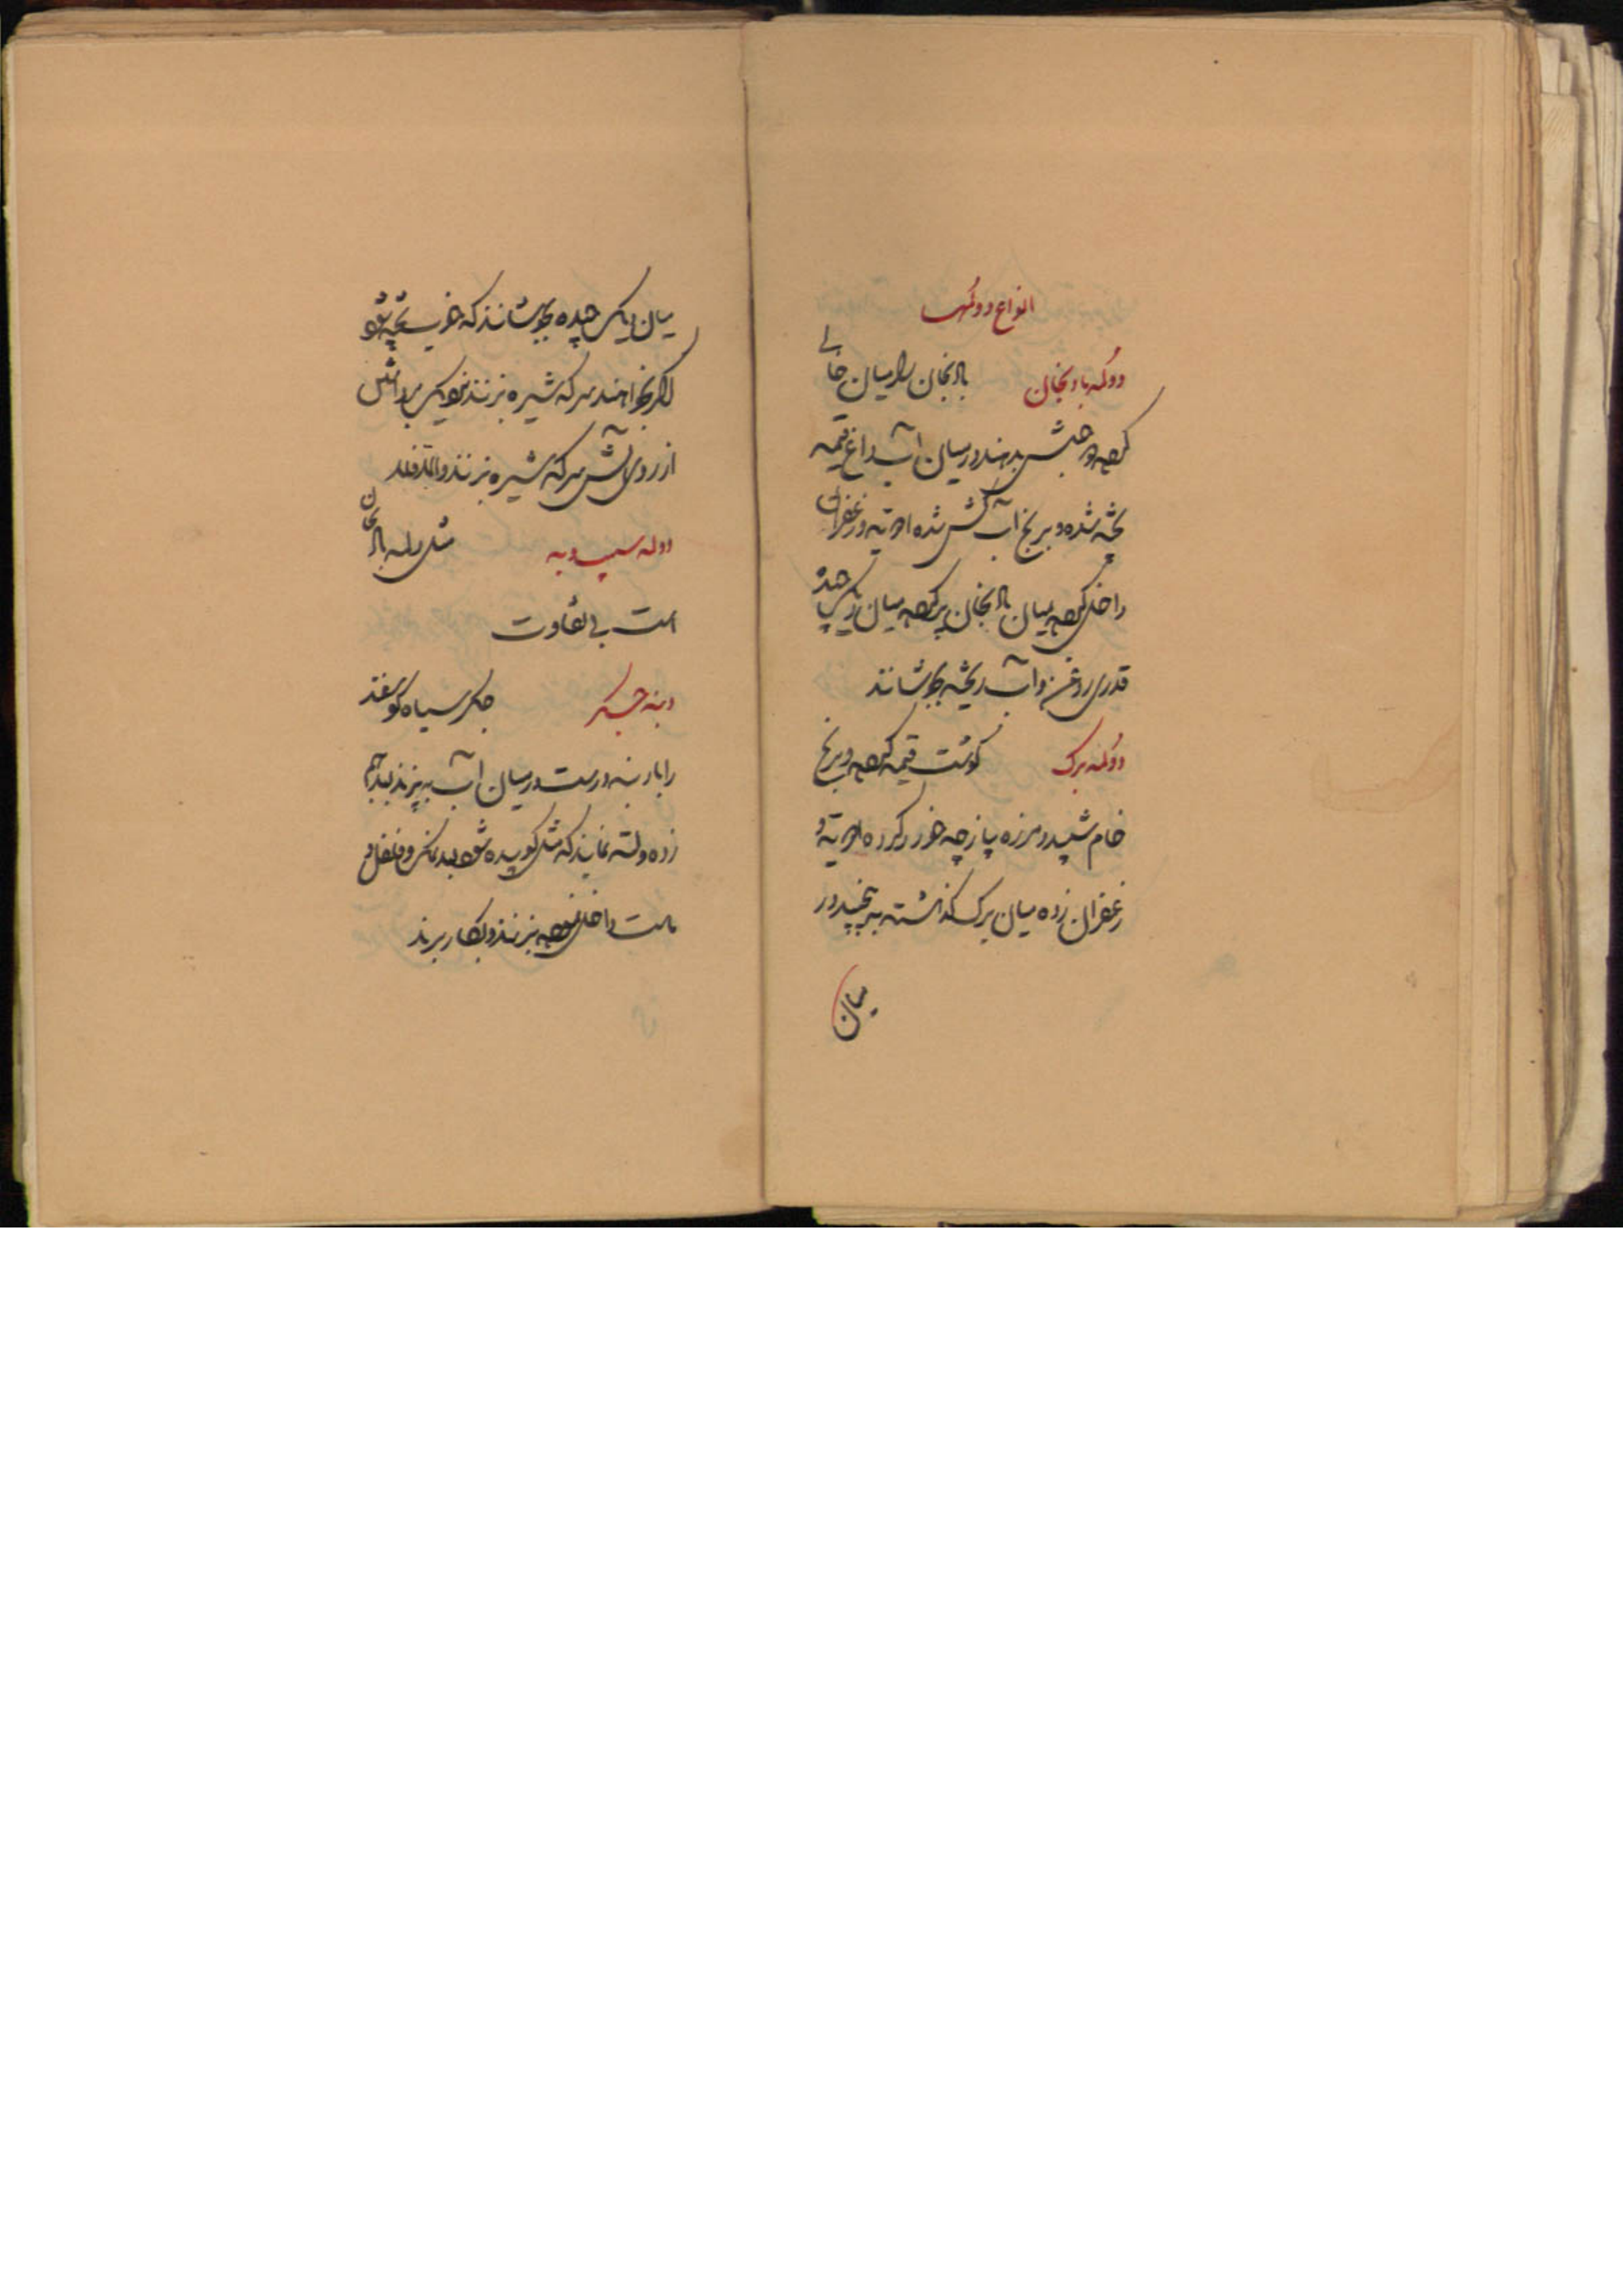 انواع دولمها
دولمه بادنجان بادنجان را میان خالی
کرده دو جوش بدهند در میان آب داغ قیمه
پخته شده و برنج آب کش شده ادویه و زعفران
داخل کرده میان بادنجان پر کرده میان دیک چیده
قدری روغن و آب ریخته بجوشانند
دولمه برک کوشت قیمه کرده و برنج
خام شپید و مرزه پیازچه خورد کرده ادویه و
زعفران زده میان برک کذاشته به پیچید در
میان
میان دیک چیده بجوشانند که خوب پخته شود
اکر بخواهند سرکه شیره بزنند دیک برداشتن
از روی آتش سرکه شیره بزنند و الا فلا
دولمه سیب و به مثل دلمه بادنجان
است بی تفاوت
دنبه جکر جکر سیاه کوسفند
را با دنبه درست در میان آب به پزند بعد بهم
زده و لته نمایند که مثل کوبیده شود بعد نمک و فلفل و
ماست داخل نموده بزنند و بکار برند